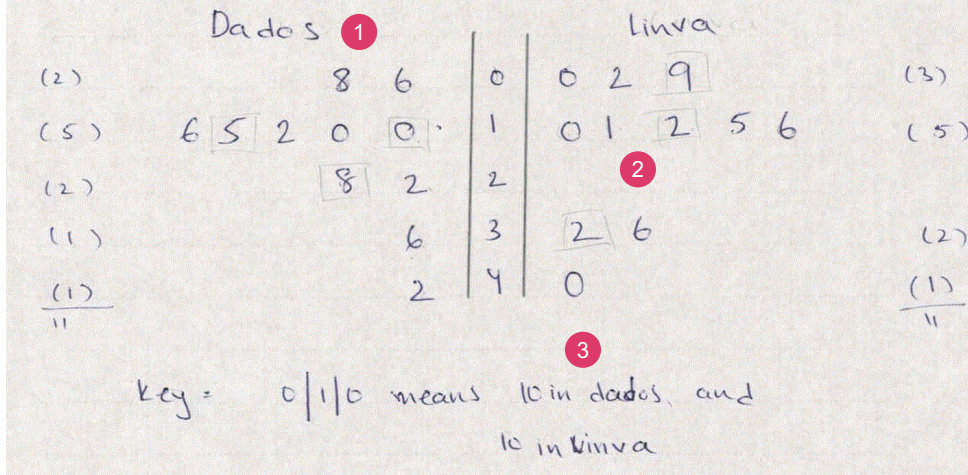 Dados 1 Linva
(2) 8 6 0 0 2 9 (3)
(5) 6 5 2 0 0 1 0 1 2 5 6 (5)
2
(2) 8 2 2
(1) 6 3 2 6 (2)
(1) 2 4 0 (1)
11 11
3
Key = 0|1|0 means 10 in dados, and
10 in Linva